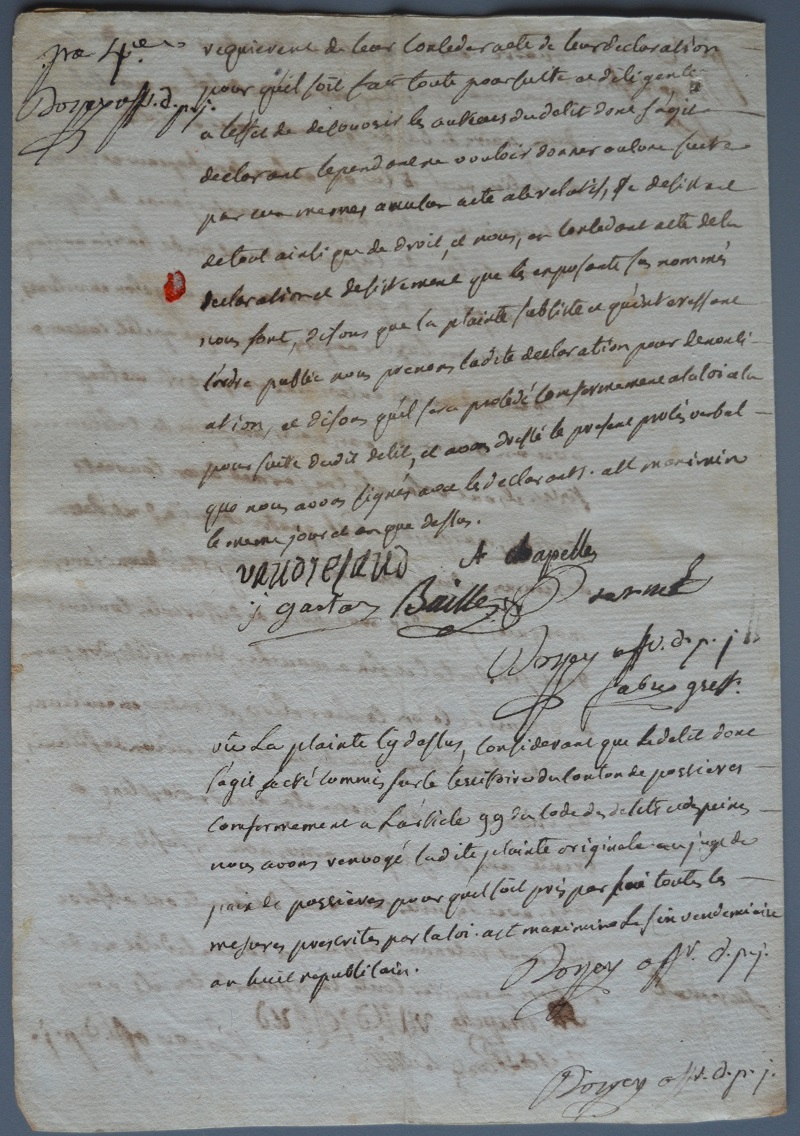 pre 4e
requierent de leur conceder acte de leur declaration
pour qu'il soit fait toute poursuite et diligente
a l'effet de decouvrir les auteurs du delit dont s'agit
declarant cependant ne vouloir donner aucune suite
par eux memes a aucun acte a ce relatif, se desistant
de tout ainsi que de droit, et nous, en concedant acte de la
declaration et desistement que les exposants sus nommés
nous font, disons que la plainte subsiste et qu'interessant
l'ordre public nous prenons ladite declaration pour denonci-
ation, et disons qu'il sera procedé conformement a la loi a la
poursuite dudit delit, et avons dressé le present procès verbal
que nous avons signés avec les declarants. a st maximin
le meme jour et an que dessus.
A chapelle
j gastan Baille
off. d. p. j.
fabre greff.
vu La plainte cy dessus, considerant que Le delit dont
s'agit a eté commis sur le territoire du canton de
conformement a L'article 99 du code des delits et des peines
nous avons renvoyé ladite plainte originale au juge de
paix de pour qu'il soit pris par lui toutes les
mesures prescrites par la loi. a st maximin Le six vendemiaire
an huit republicain.
off. d. p. j.
off. d. p. j.